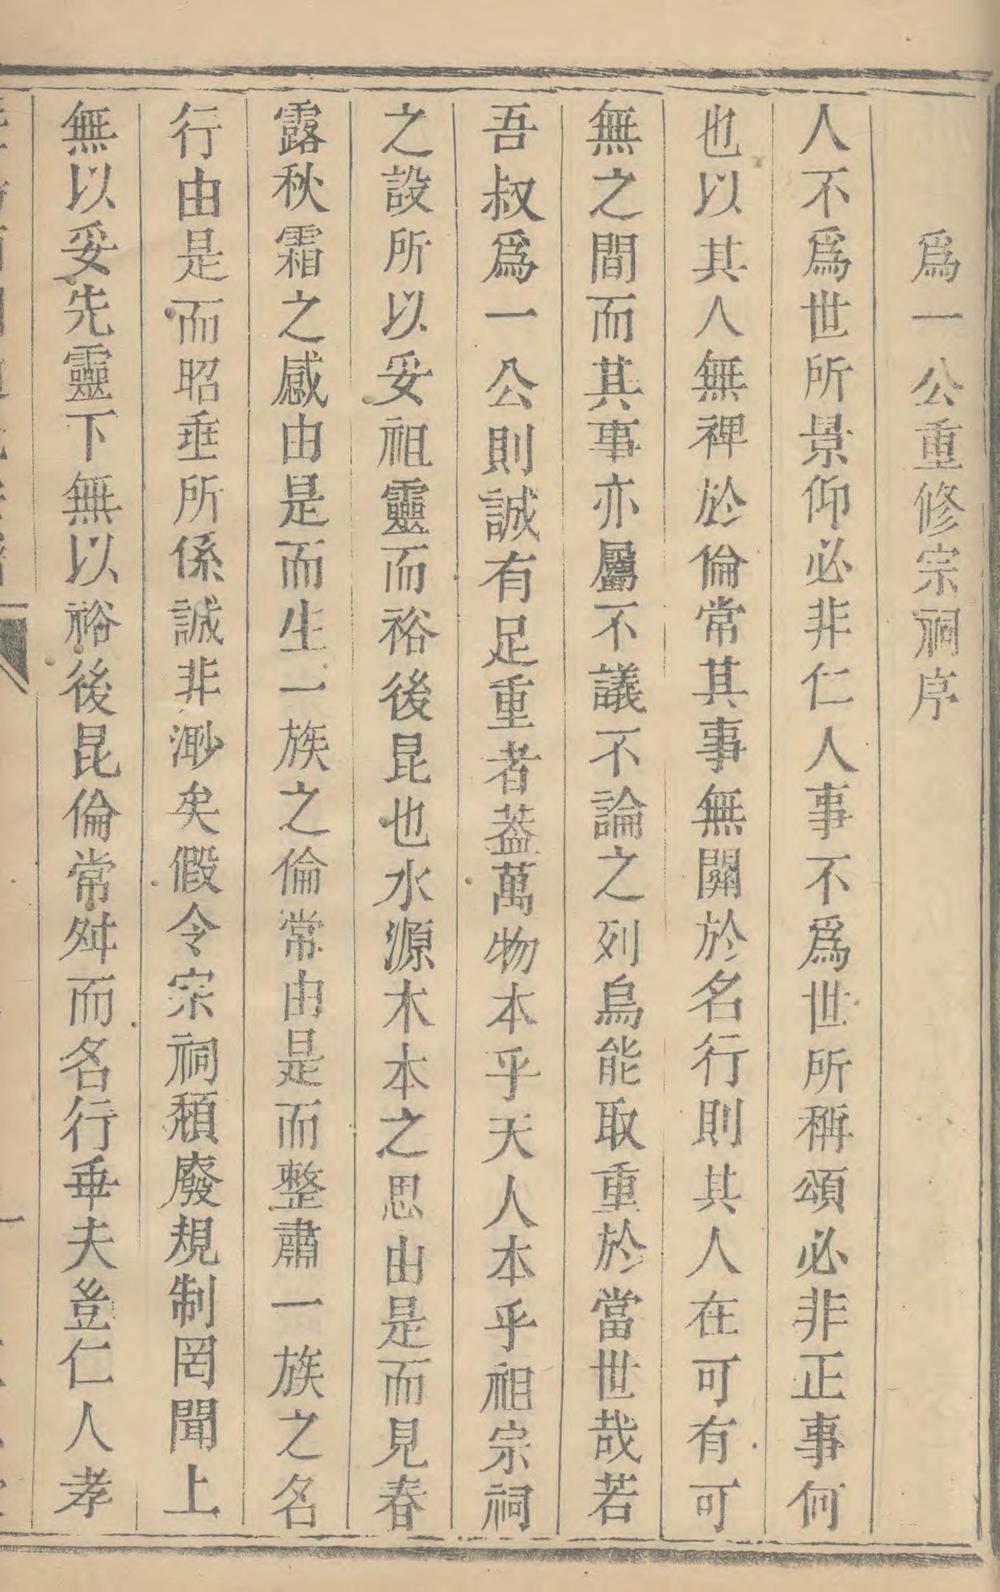 爲一公重修宗祠序
人不爲世所景仰必非仁人事不爲世所稱頌必非正事何
也以其人無裨於倫常其事無關於名行則其人在可有可
無之間而其事亦屬不議不論之列烏能取重於當世哉若
吾叔爲一公則誠有足重者葢萬物本乎天人本乎祖宗祠
之設所以妥祖靈而裕後昆也水源木本之思由是而見春
露秋霜之感由是而生一族之倫常由是而整肅一族之名
行由是而昭垂所係誠非渺矣假令宗祠頽廢規制罔聞上
無以妥先靈下無以裕後昆倫常舛而名行乖夫豈仁人孝